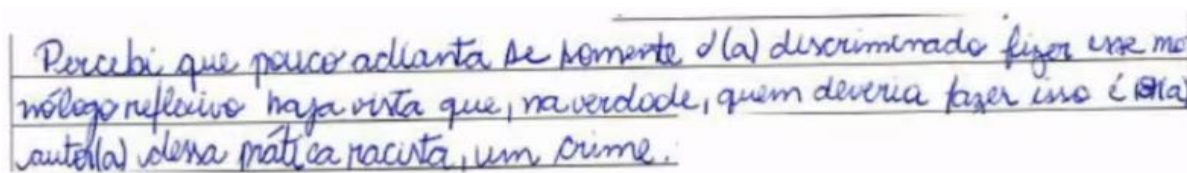 Percebi que pouco adianta se somente o(a) discriminado fizer esse mo
nólogo reflexivo haja vista que, na verdade, quem deveria fazer isso é o(a)
autor(a) dessa prática racista, um crime.